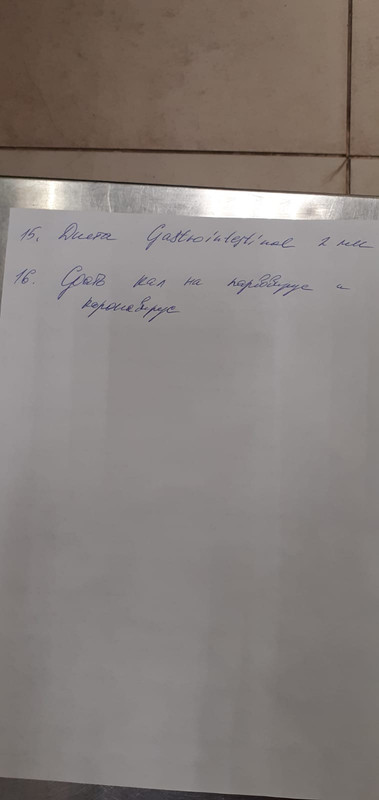 15. Диета Gastrointestinal 2 нед
16. Сдать кал на парвовирус и
коронавирус